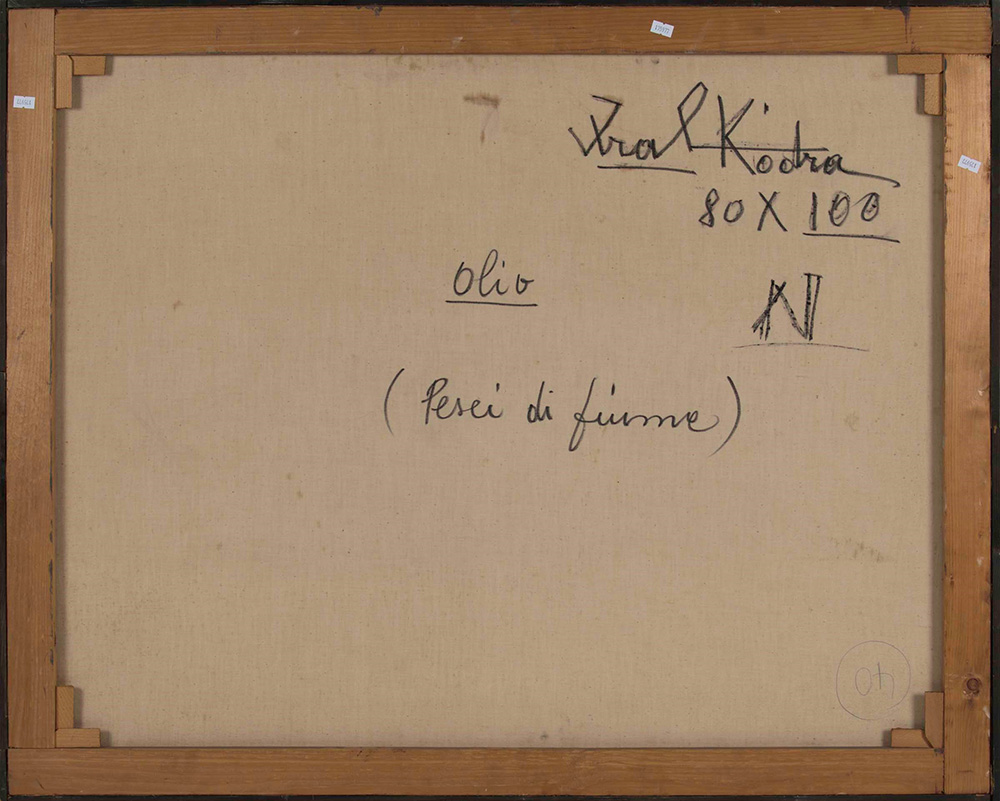 Ibral Kodra
80 X 100
Olio
N
(Pesci di fiume)
40